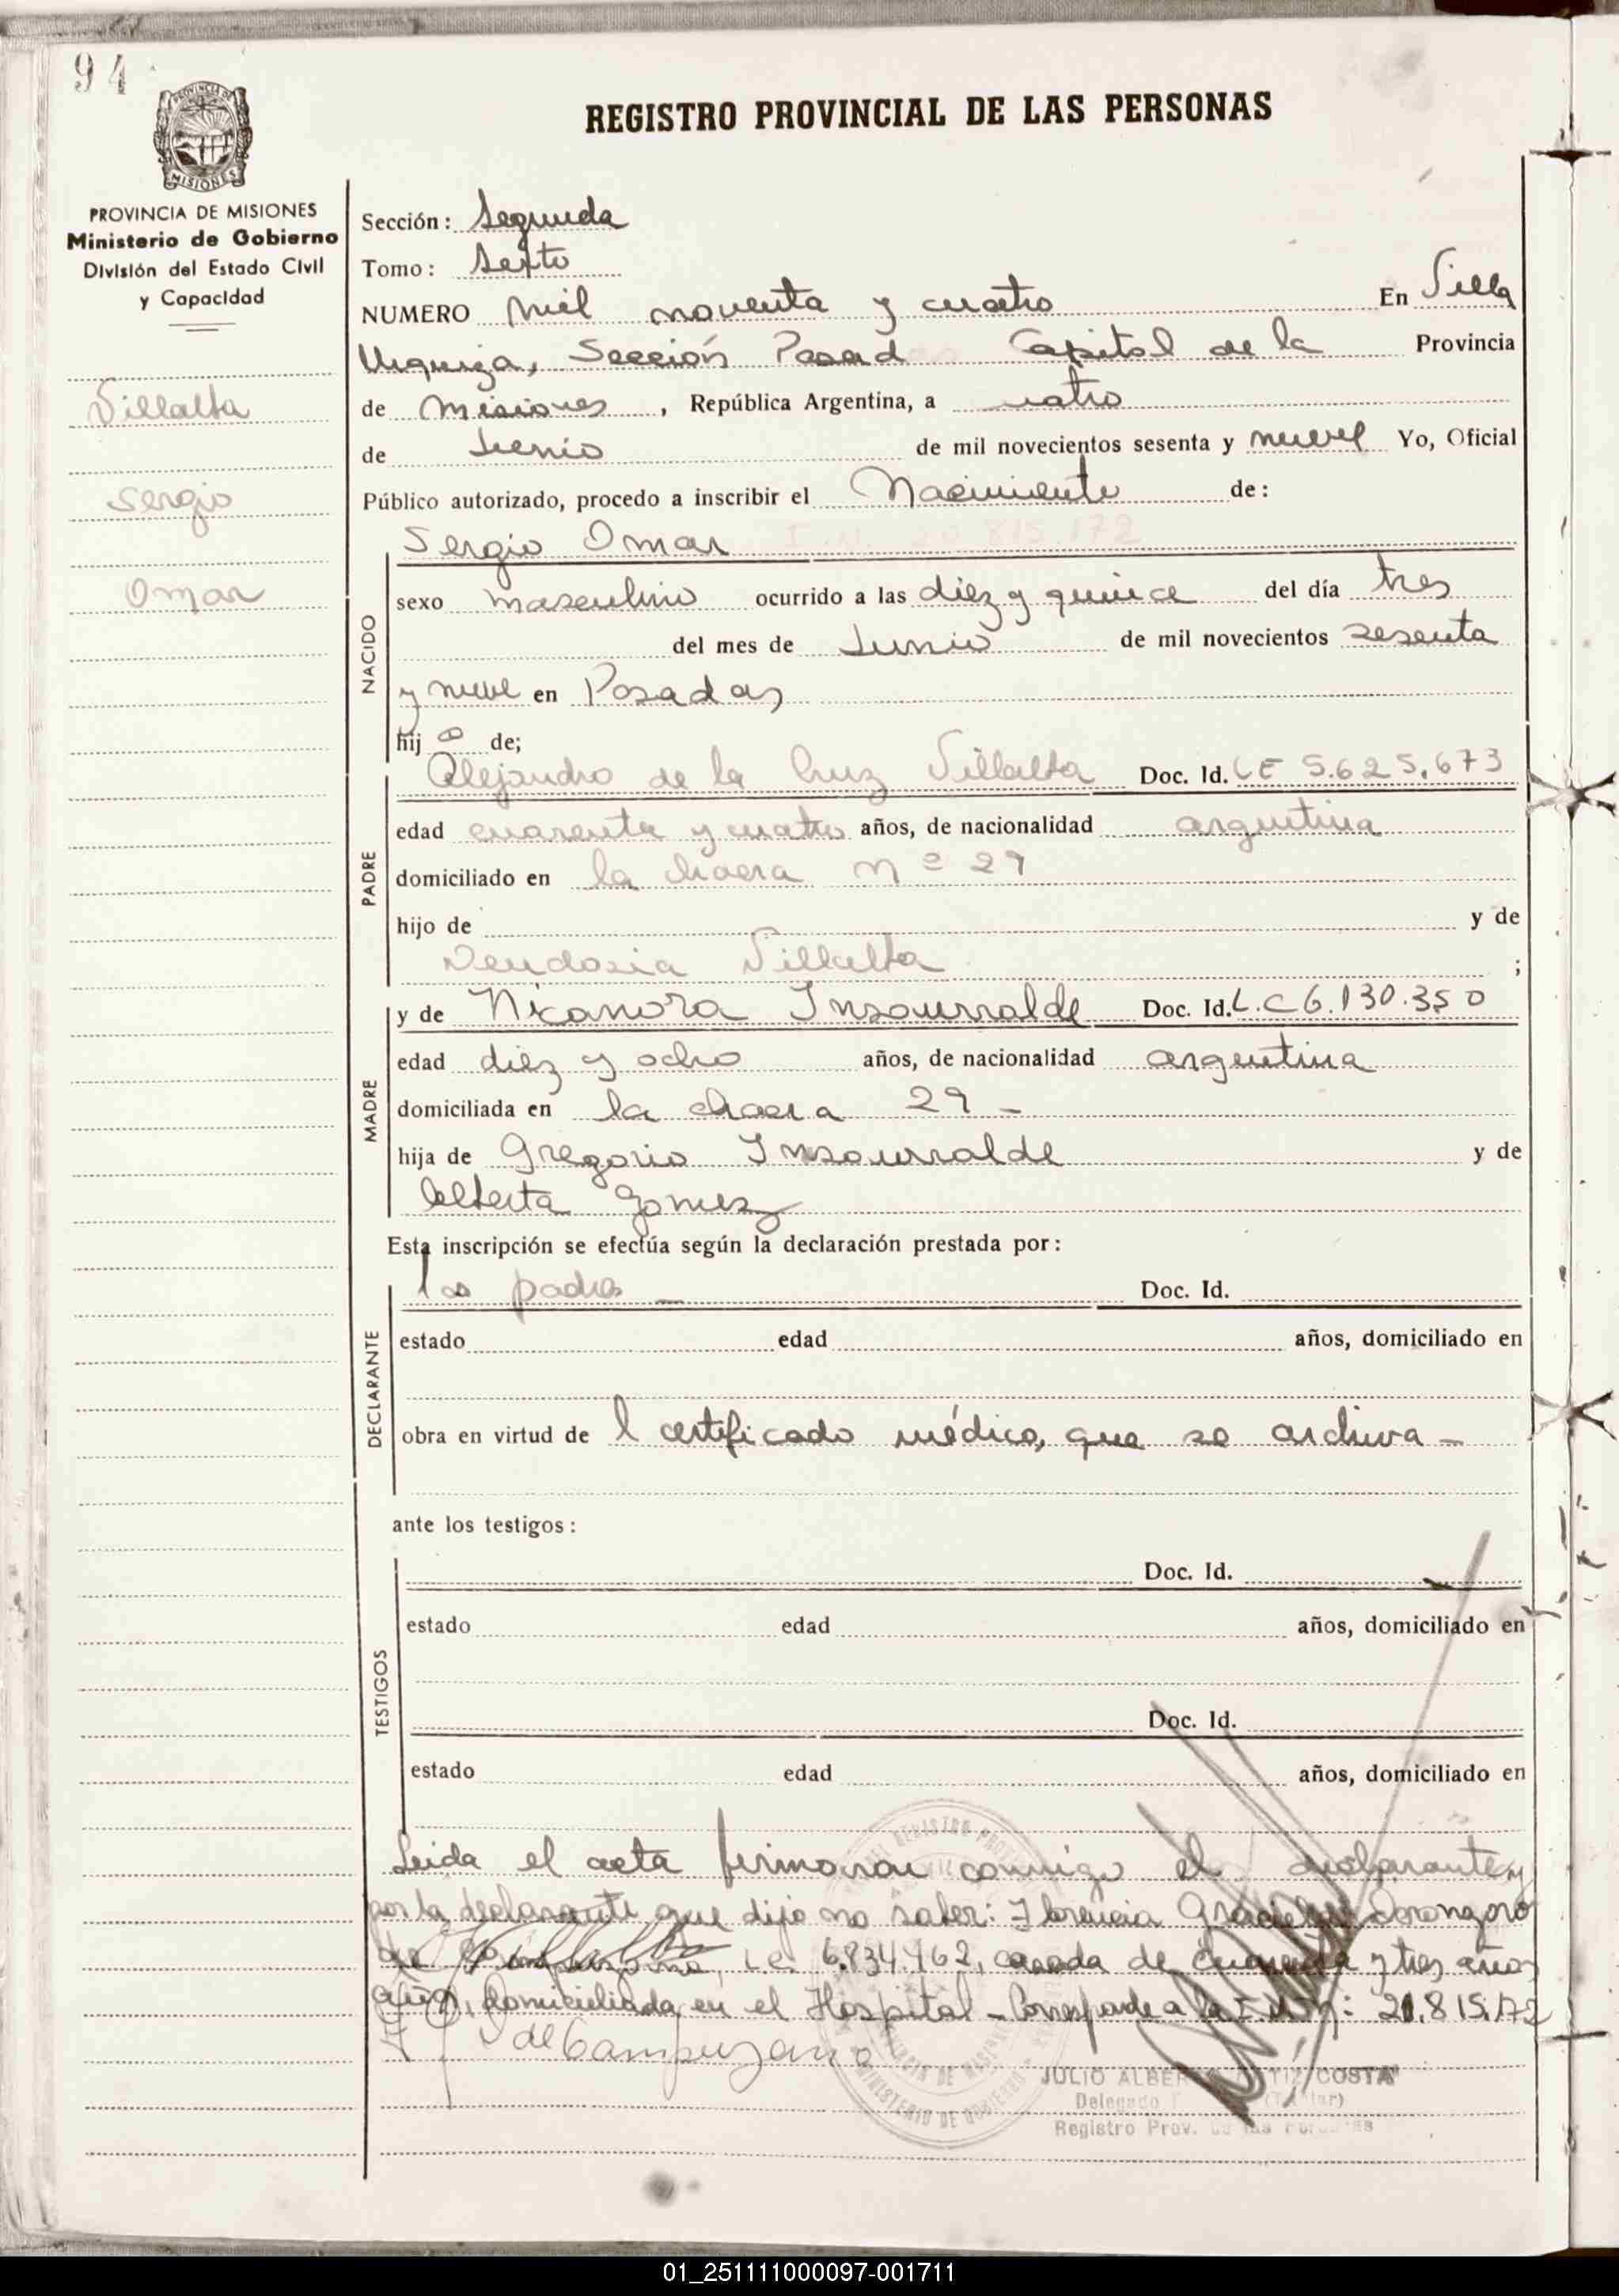 94
PROVINCIA DE MISIONES
Ministerio de Gobierno
División del Estado Civil
y Capacidad
Villalba
Sergio
Omar
REGISTRO PROVINCIAL DE LAS PERSONAS
Sección: Segunda
Tomo: Sexto
NUMERO Mil noventa y cuatro En Villa
Urquiza, Sección Posadas Capital de la Provincia
de Misiones, República Argentina, a cuatro
de Junio de mil novecientos sesenta y nueve Yo, Oficial
Público autorizado, procedo a inscribir el Nacimiento de:
Sergio Omar I.N. 20.815.172
NACIDO
sexo masculino ocurrido a las diez y quince del día tres
del mes de Junio de mil novecientos sesenta
y nueve en Posadas
hijo de;
PADRE
Alejandro de la Cruz Villalba Doc. Id. LE 5.625.673
edad cuarenta y cuatro años, de nacionalidad argentina
domiciliado en la chacra nº 29
hijo de y de
Villalba ;
MADRE
y de Nicanora Insaurralde Doc. Id. L.C 6.130.350
edad diez y ocho años, de nacionalidad argentina
domiciliada en la chacra 29 -
hija de Gregorio Insaurralde y de
Alberta Gomez
Esta inscripción se efectúa según la declaración prestada por:
DECLARANTE
los padres - Doc. Id.
estado edad años, domiciliado en
obra en virtud de l certificado médico, que se archiva -
ante los testigos:
TESTIGOS
Doc. Id.
estado edad años, domiciliado en
Doc. Id.
estado edad años, domiciliado en
Leida el acta firmaron conmigo el declarante y
por la declarante que dijo no saber: Florencia
de L.C. 6.834.462, casada de cuarenta y tres años
domiciliada en el Hospital - Corresponde a la I.N.Nº: 20.815.172
de Campuzano
JULIO ALBER COSTA
Delegado
Registro Prov. de las Personas
01_251111000097-001711